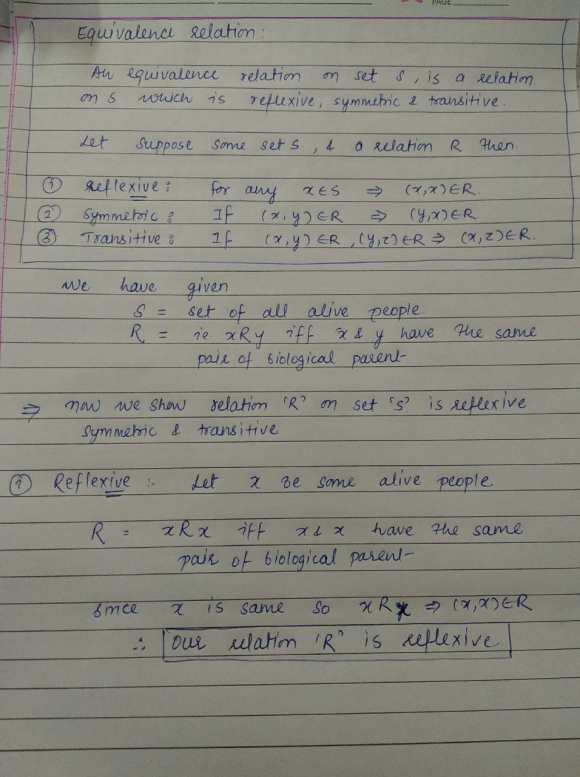 PAGE
Equivalence relation:
An equivalence relation on set S, is a relation
on S which is reflexive, symmetric & transitive.
Let suppose some set S, & a relation R then.
① reflexive: for any x∈S ⇒ (x,x)∈R.
② Symmetric: If (x,y)∈R ⇒ (y,x)∈R
③ Transitive: If (x,y)∈R, (y,z)∈R ⇒ (x,z)∈R.
We have given
S = set of all alive people
R = ie xRy iff x & y have the same
pair of biological parent
⇒ now we show relation 'R' on set 'S' is reflexive
symmetric & transitive
① Reflexive :- Let x be some alive people
R = xRx iff x & x have the same
pair of biological parent
Since x is same so xRx ⇒ (x,x)∈R
∴ our relation 'R' is reflexive